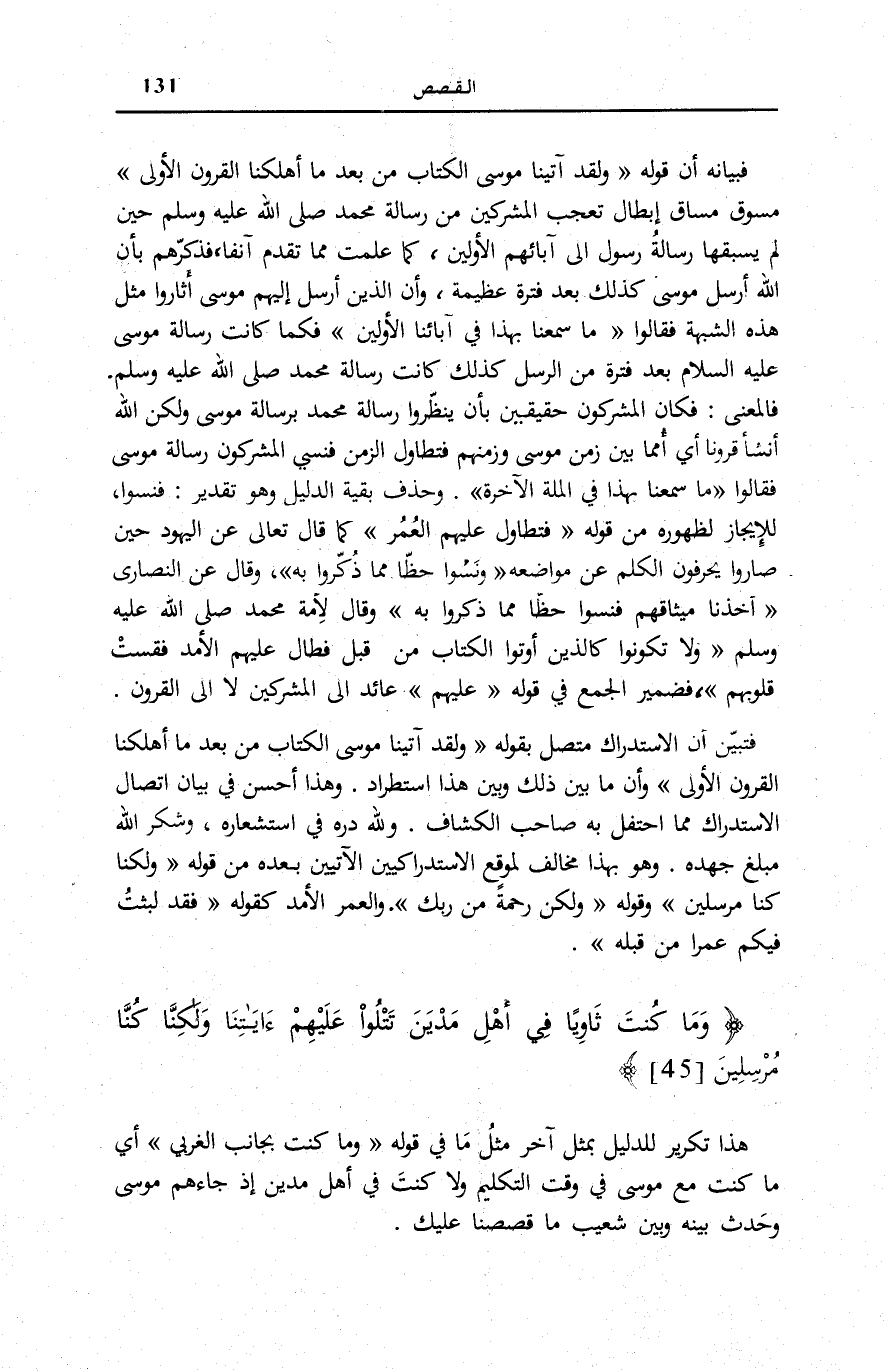 القصص 131
فبيانه أن قوله « ولقد آتينا موسى الكتاب من بعد ما أهلكنا القرون الأولى »
مسوق مساق إبطال تعجب المشركين من رسالة محمد صلى الله عليه وسلم حين
لم يسبقها رسالةُ رسول الى آبائهم الأولين ، كما علمت مما تقدم آنفا،فذكرّهم بأن
الله أرسل موسى كذلك بعد فترة عظيمة ، وأن الذين أرسل إليهم موسى أَثاروا مثل
هذه الشبهة فقالوا « ما سمعنا بهذا في آبائنا الأولين » فكما كانت رسالة موسى
عليه السلام بعد فترة من الرسل كذلك كانت رسالة محمد صلى الله عليه وسلم.
فالمعنى : فكان المشركون حقيقين بأن ينظّروا رسالة محمد برسالة موسى ولكن الله
أنشأ قرونا أي أُمما بين زمن موسى وزمنهم فتطاول الزمن فنسي المشركون رسالة موسى
فقالوا «ما سمعنا بهذا في الملة الآخرة» . وحذف بقية الدليل وهو تقدير : فنسوا،
للإيجاز لظهوره من قوله « فتطاول عليهم العُمُر » كما قال تعالى عن اليهود حين
صاروا يحرفون الكلم عن مواضعه« ونَسُوا حظّا مما ذُكّروا به»، وقال عن النصارى
« أخذنا ميثاقهم فنسوا حظًا مما ذكروا به » وقال لِأمة محمد صلى الله عليه
وسلم « ولا تكونوا كالذين أوتوا الكتاب من قبل فطال عليهم الأمد فقستْ
قلوبهم »،فضمير الجمع في قوله « عليهم » عائد الى المشركين لا الى القرون .
فتبيّن أن الاستدراك متصل بقوله « ولقد آتينا موسى الكتاب من بعد ما أهلكنا
القرون الأولى » وأن ما بين ذلك وبين هذا استطراد . وهذا أحسن في بيان اتصال
الاستدراك مما احتفل به صاحب الكشاف . ولله دره في استشعاره ، وشكر الله
مبلغ جهده . وهو بهذا مخالف لموقع الاستدراكيين الآتيين بعده من قوله « ولكنا
كنا مرسلين » وقوله « ولكن رحمةً من ربك ».والعمر الأمد كقوله « فقد لبثتُ
فيكم عمرا من قبله » .
﴿ وَمَا كُنتَ ثَاوِيًا فِي أَهْلِ مَدْيَنَ تَتْلُواْ عَلَيْهِمْ ءَايَـٰتِنَا وَلَـٰكِنَّا كُنَّا
مُرْسِلِينَ [45] ﴾
هذا تكرير للدليل بمثل آخر مثلُ مَا في قوله « وما كنت بجانب الغربي » أي
ما كنت مع موسى في وقت التكليم ولا كنتَ في أهل مدين إذ جاءهم موسى
وحَدث بينه وبين شعيب ما قصصنا عليك .